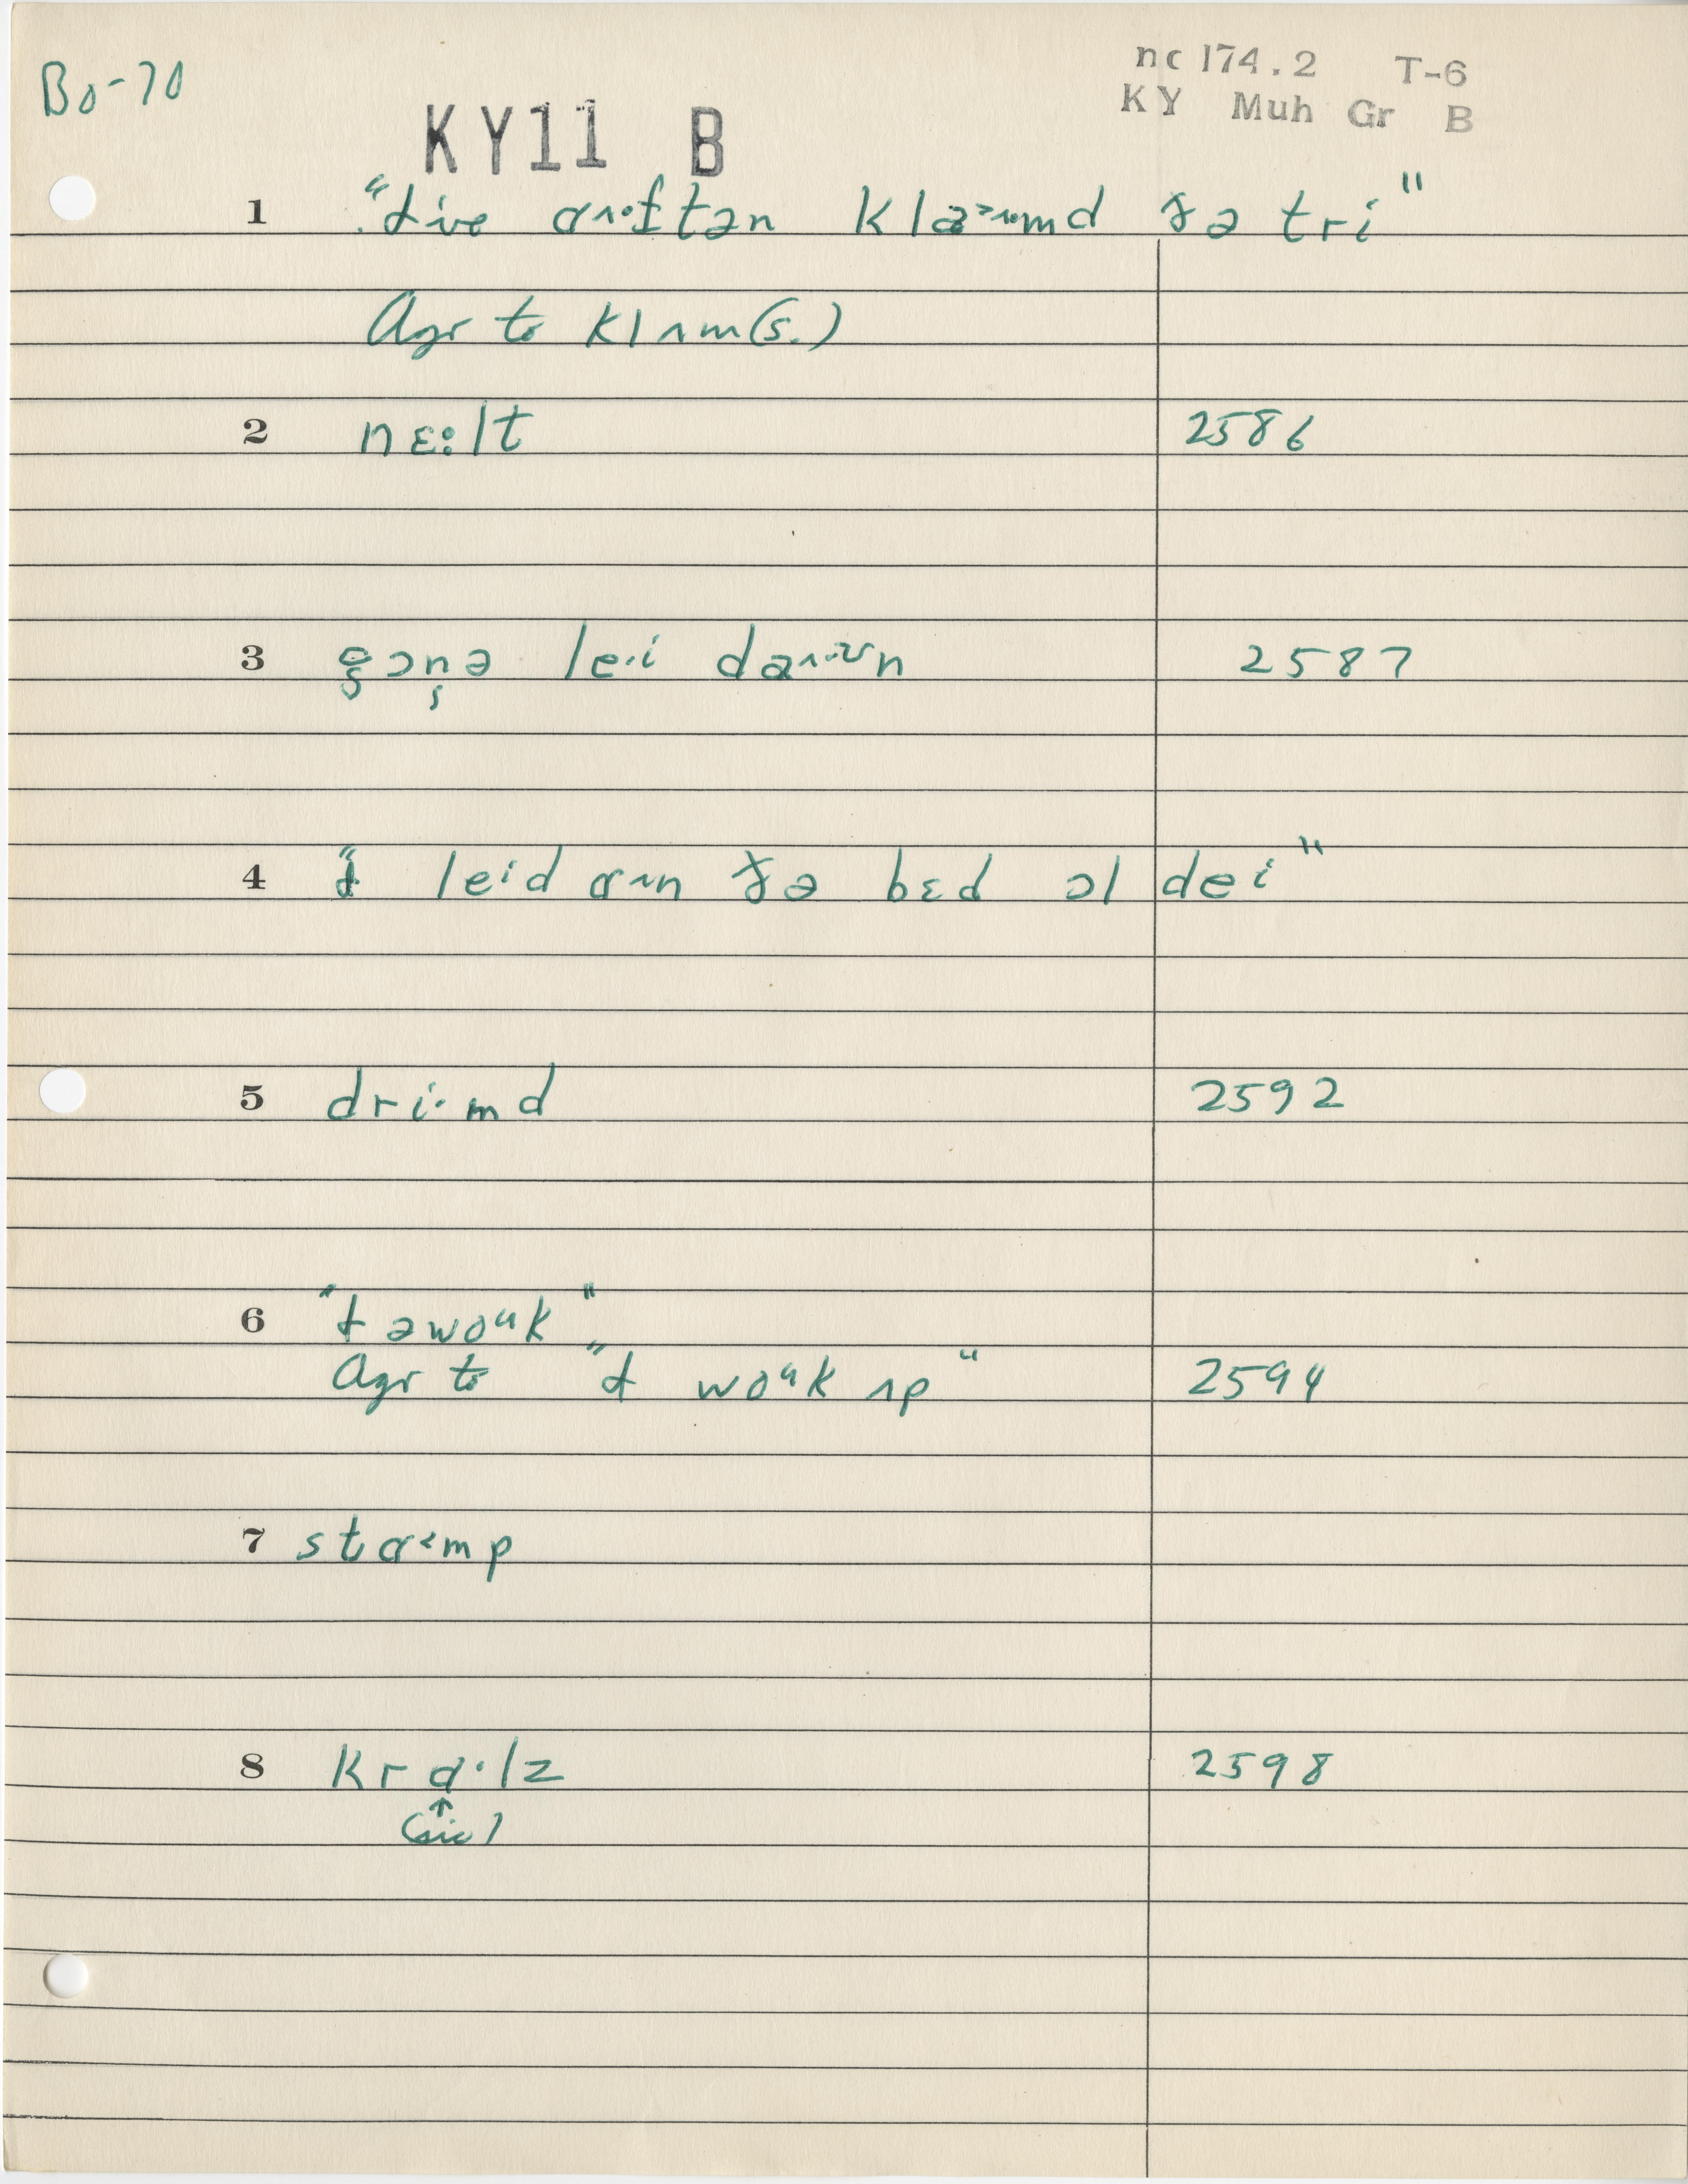 Bo-70
nc 174.2 T-6
KY Muh Gr B
KY11 B
1 "ɨive ɑ^·ftən klaᵊ^·md ðə tri"
Agr to klʌm(s.)
2 nɛ:lt 2586
3 ɔnə le·i daʌ·ᵘn 2587
4 "ɨ leid ɑ^n ðə bɛd ɔl dei"
5 dri·md 2592
6 "ɨ əwoᵘk"
Agr to "ɨ woᵘk ʌp" 2594
7 stɑ˂mp
8 krɑ·lz 2598
↑
(sic)